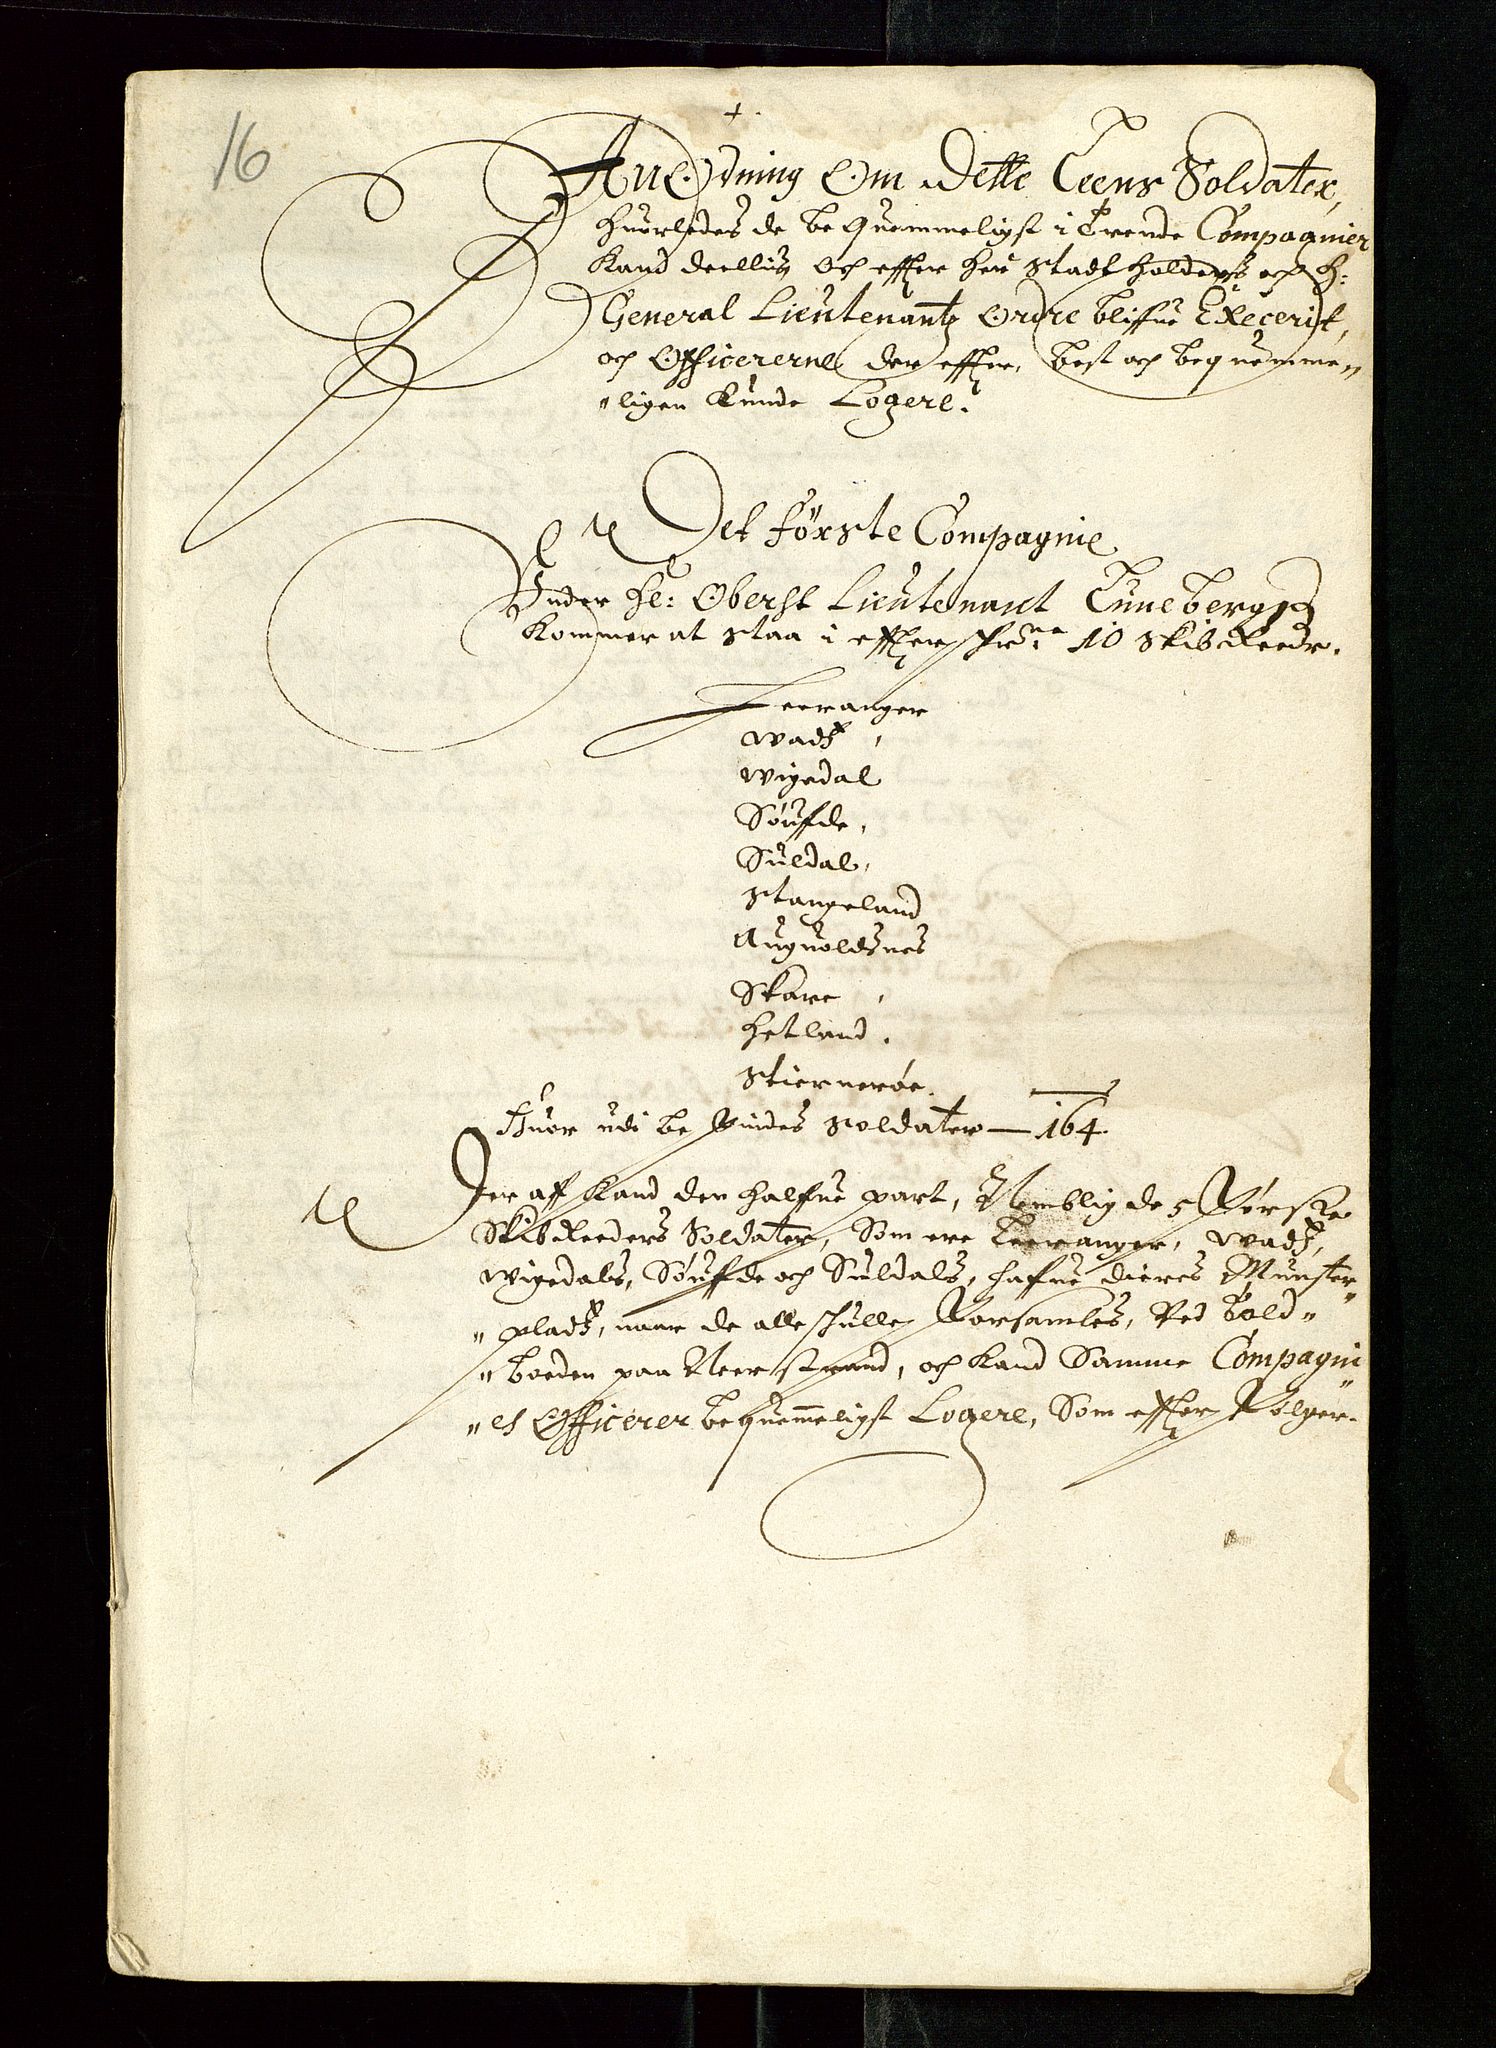 16
Anordning Om dette Leens Soldater,
huorledes de beQuemmeligst i trende Compagnier
Kand deellis, Och effter her Stadtholders och H:
General Lieutenantz Ordre bliffue Execerit,
och Officererne der effter, best och bequemme„
„ligen Kunde Logere.
Det förste Compagnie
Under He: Oberst Lieutenant Tuneberg
Kommer at staa i effterschr:ne 10 Skibreedr.
Leeranger
Wadtz,
Wigedal
Souffde,
Suldal,
Stangeland
Auguoldsnes
Skare,
Hetland.
Stiernerøe.
Huor udi befindes Soldater — 164.
Der aff Kand den halffue part, Nemblig de 5 Første
Skibreeders Soldater, Som ere Leeranger, Wadtz,
Wigedals, Souffde och Suldals, haffue dieres Munster„
„pladtz, naar de alle schulle forsamles, Ved Bold„
„boeden paa Neerstrand, och Kand Samme Compagni„
„es Officerer bequemmeligst Logere, Som effter Følger.